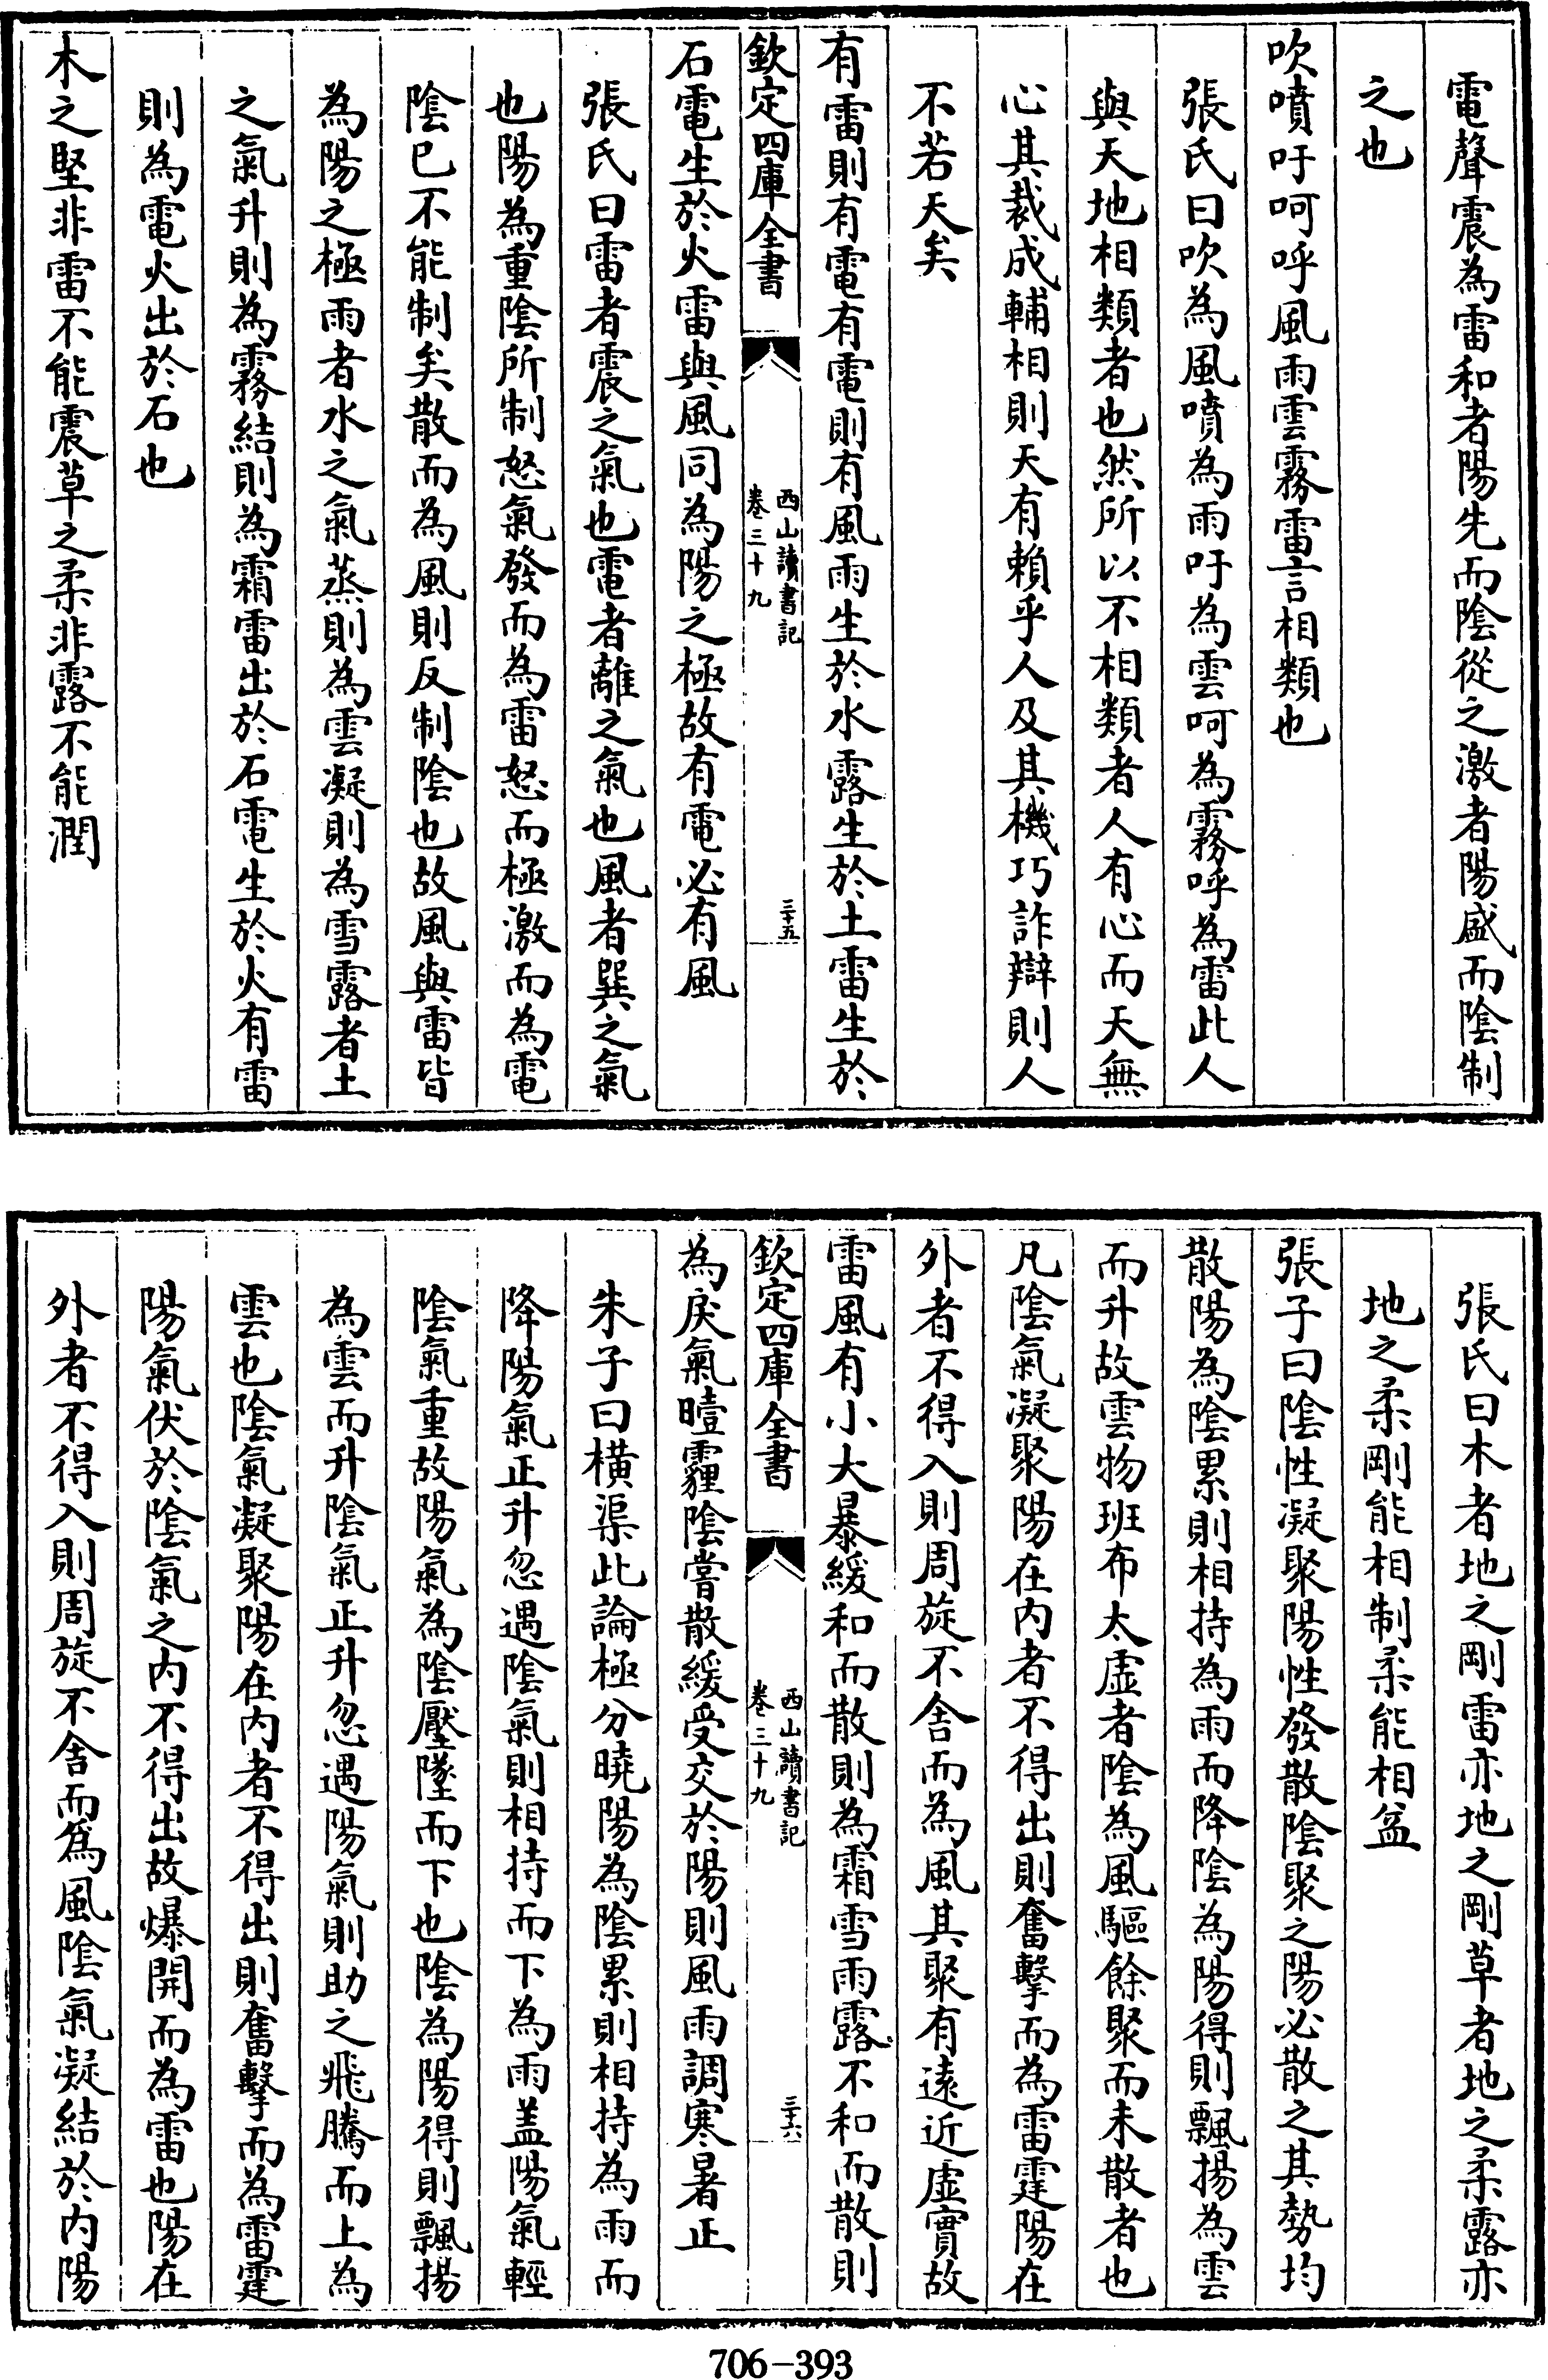 電聲震為雷和者陽先而陰從之激者陽盛而陰制
之也
吹噴吁呵呼風雨雲霧雷言相類也
張氏曰吹為風噴為雨吁為雲呵為霧呼為雷此人
與天地相類者也然所以不相類者人有心而天無
心其裁成輔相則天有賴乎人及其機巧詐辯則人
不若天矣
有雷則有電有電則有風雨生於水露生於土雷生於
欽定四庫全書
西山讀書記
卷三十九
三十五
石電生於火雷與風同為陽之極故有電必有風
張氏曰雷者震之氣也電者離之氣也風者巽之氣
也陽為重陰所制怒氣發而為雷怒而極激而為電
陰已不能制矣散而為風則反制陰也故風與雷皆
為陽之極雨者水之氣蒸則為雲凝則為雪露者土
之氣升則為霧結則為霜雷出於石電生於火有雷
則為電火出於石也
木之堅非雷不能震草之柔非露不能潤
張氏曰木者地之剛雷亦地之剛草者地之柔露亦
地之柔剛能相制柔能相益
張子曰陰性凝聚陽性發散陰聚之陽必散之其勢均
散陽為陰累則相持為雨而降陰為陽得則飄揚為雲
而升故雲物班布太虛者陰為風驅餘聚而未散者也
凡陰氣凝聚陽在内者不得出則奮擊而為雷霆陽在
外者不得入則周旋不舍而為風其聚有遠近虛實故
雷風有小大暴緩和而散則為霜雪雨露不和而散則
欽定四庫全書
西山讀書記
卷三十九
三十六
為戾氣曀霾陰嘗散緩受交於陽則風雨調寒暑正
朱子曰横渠此論極分曉陽為陰累則相持為雨而
降陽氣正升忽遇陰氣則相持而下為雨盖陽氣輕
陰氣重故陽氣為陰壓墜而下也陰為陽得則飄揚
為雲而升陰氣正升忽遇陽氣則助之飛騰而上為
雲也陰氣凝聚陽在内者不得出則奮擊而為雷霆
陽氣伏於陰氣之内不得出故爆開而為雷也陽在
外者不得入則周旋不舍而為風陰氣凝結於内陽
706-393